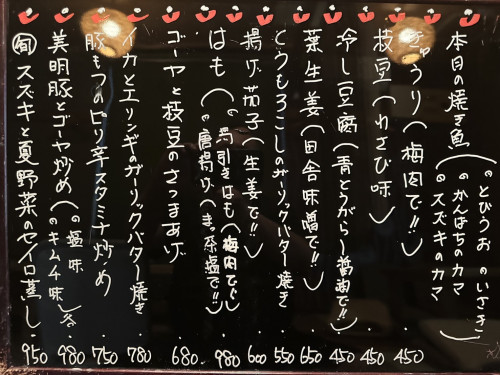 本日の焼き魚(・とびうお ・いさき
・かんぱちのカマ
・スズキのカマ
きゅうり(梅肉で!!) 450
枝豆(わさび味) 450
冷し豆腐(青とうがらし醤油で!!) 450
葉生姜(田舎味噌で!!) 650
とうもろこしのガーリックバター焼き 550
揚げ茄子(生姜で!!) 600
はも(・湯引きはも(梅肉で)
・唐揚げ(まっ茶塩で!!) 980
ゴーヤと枝豆のさつまあげ 680
イカとエリンギのガーリックバター焼き 780
豚もつのピリ辛スタミナ炒め 750
美明豚とゴーヤ炒め(・塩味
・キムチ味)各 980
旬 スズキと夏野菜のセイロ蒸し 950